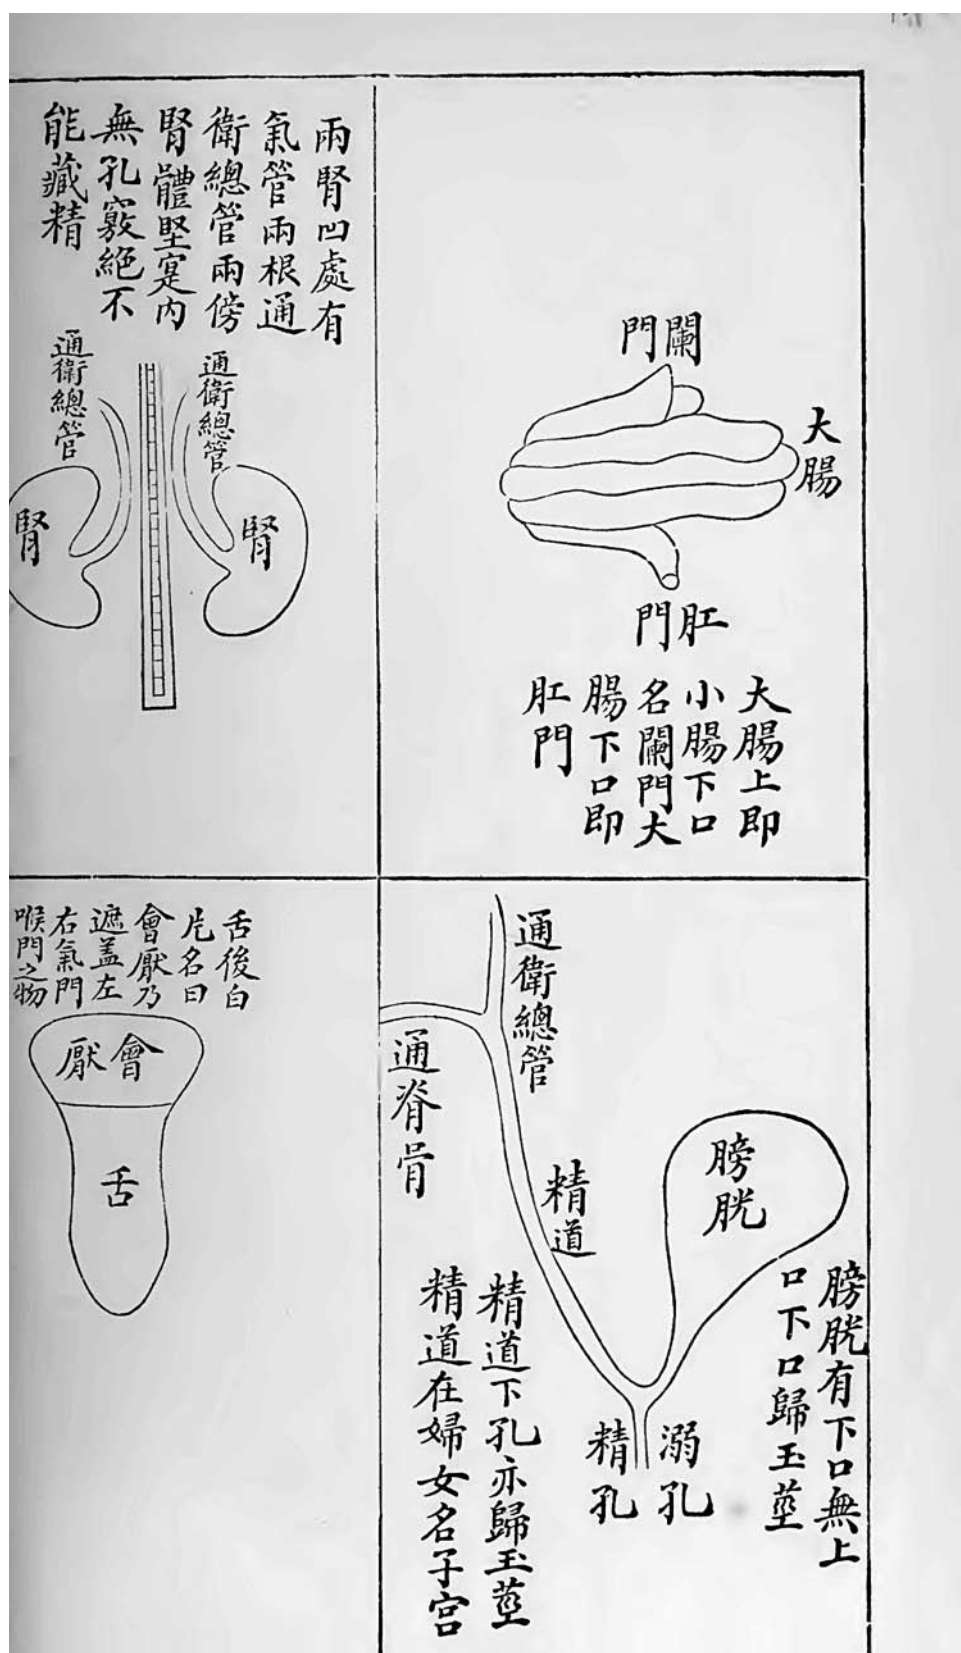 闌門
大腸
肛門
大腸上即
小腸下口
名闌門大
腸下口即
肛門
兩腎凹處有
氣管兩根通
衛總管兩傍
腎體堅寔內
無孔竅絕不
能藏精
通衛總管
通衛總管
腎
腎
通衛總管
通脊骨
精道
膀胱
膀胱有下口無上
口下口歸玉莖
溺孔
精孔
精道下孔亦歸玉莖
精道在婦女名子宮
舌後白
片名曰
會厭乃
遮盖左
右氣門
喉門之物
會厭
舌